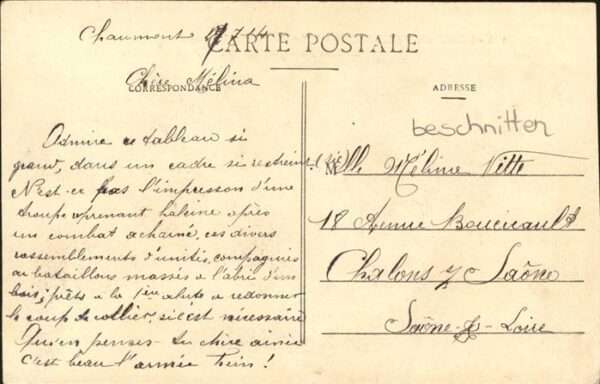 Chaumont 17 7 14
CARTE POSTALE
Chère Mélina
CORRESPONDANCE
ADRESSE
beschnitten
Admire ce tableau si
grand, dans un cadre si restreint.
N'est-ce pas l'impression d'une
troupe reprenant haleine après
un combat achainé, ces divers
rassemblements d'unités, compagnies
ou bataillons massés à l'abri d'un
bois; prêts a la 1ère alerte a redonner
le coup de collier, si c'est nécessaire
Qu'en penses-tu chère amie
c'est beau l'armée hein!
Mlle Mélina Vitte
18 Avenue Boucicault
Chalons s/ Saône
Saône-&-Loire